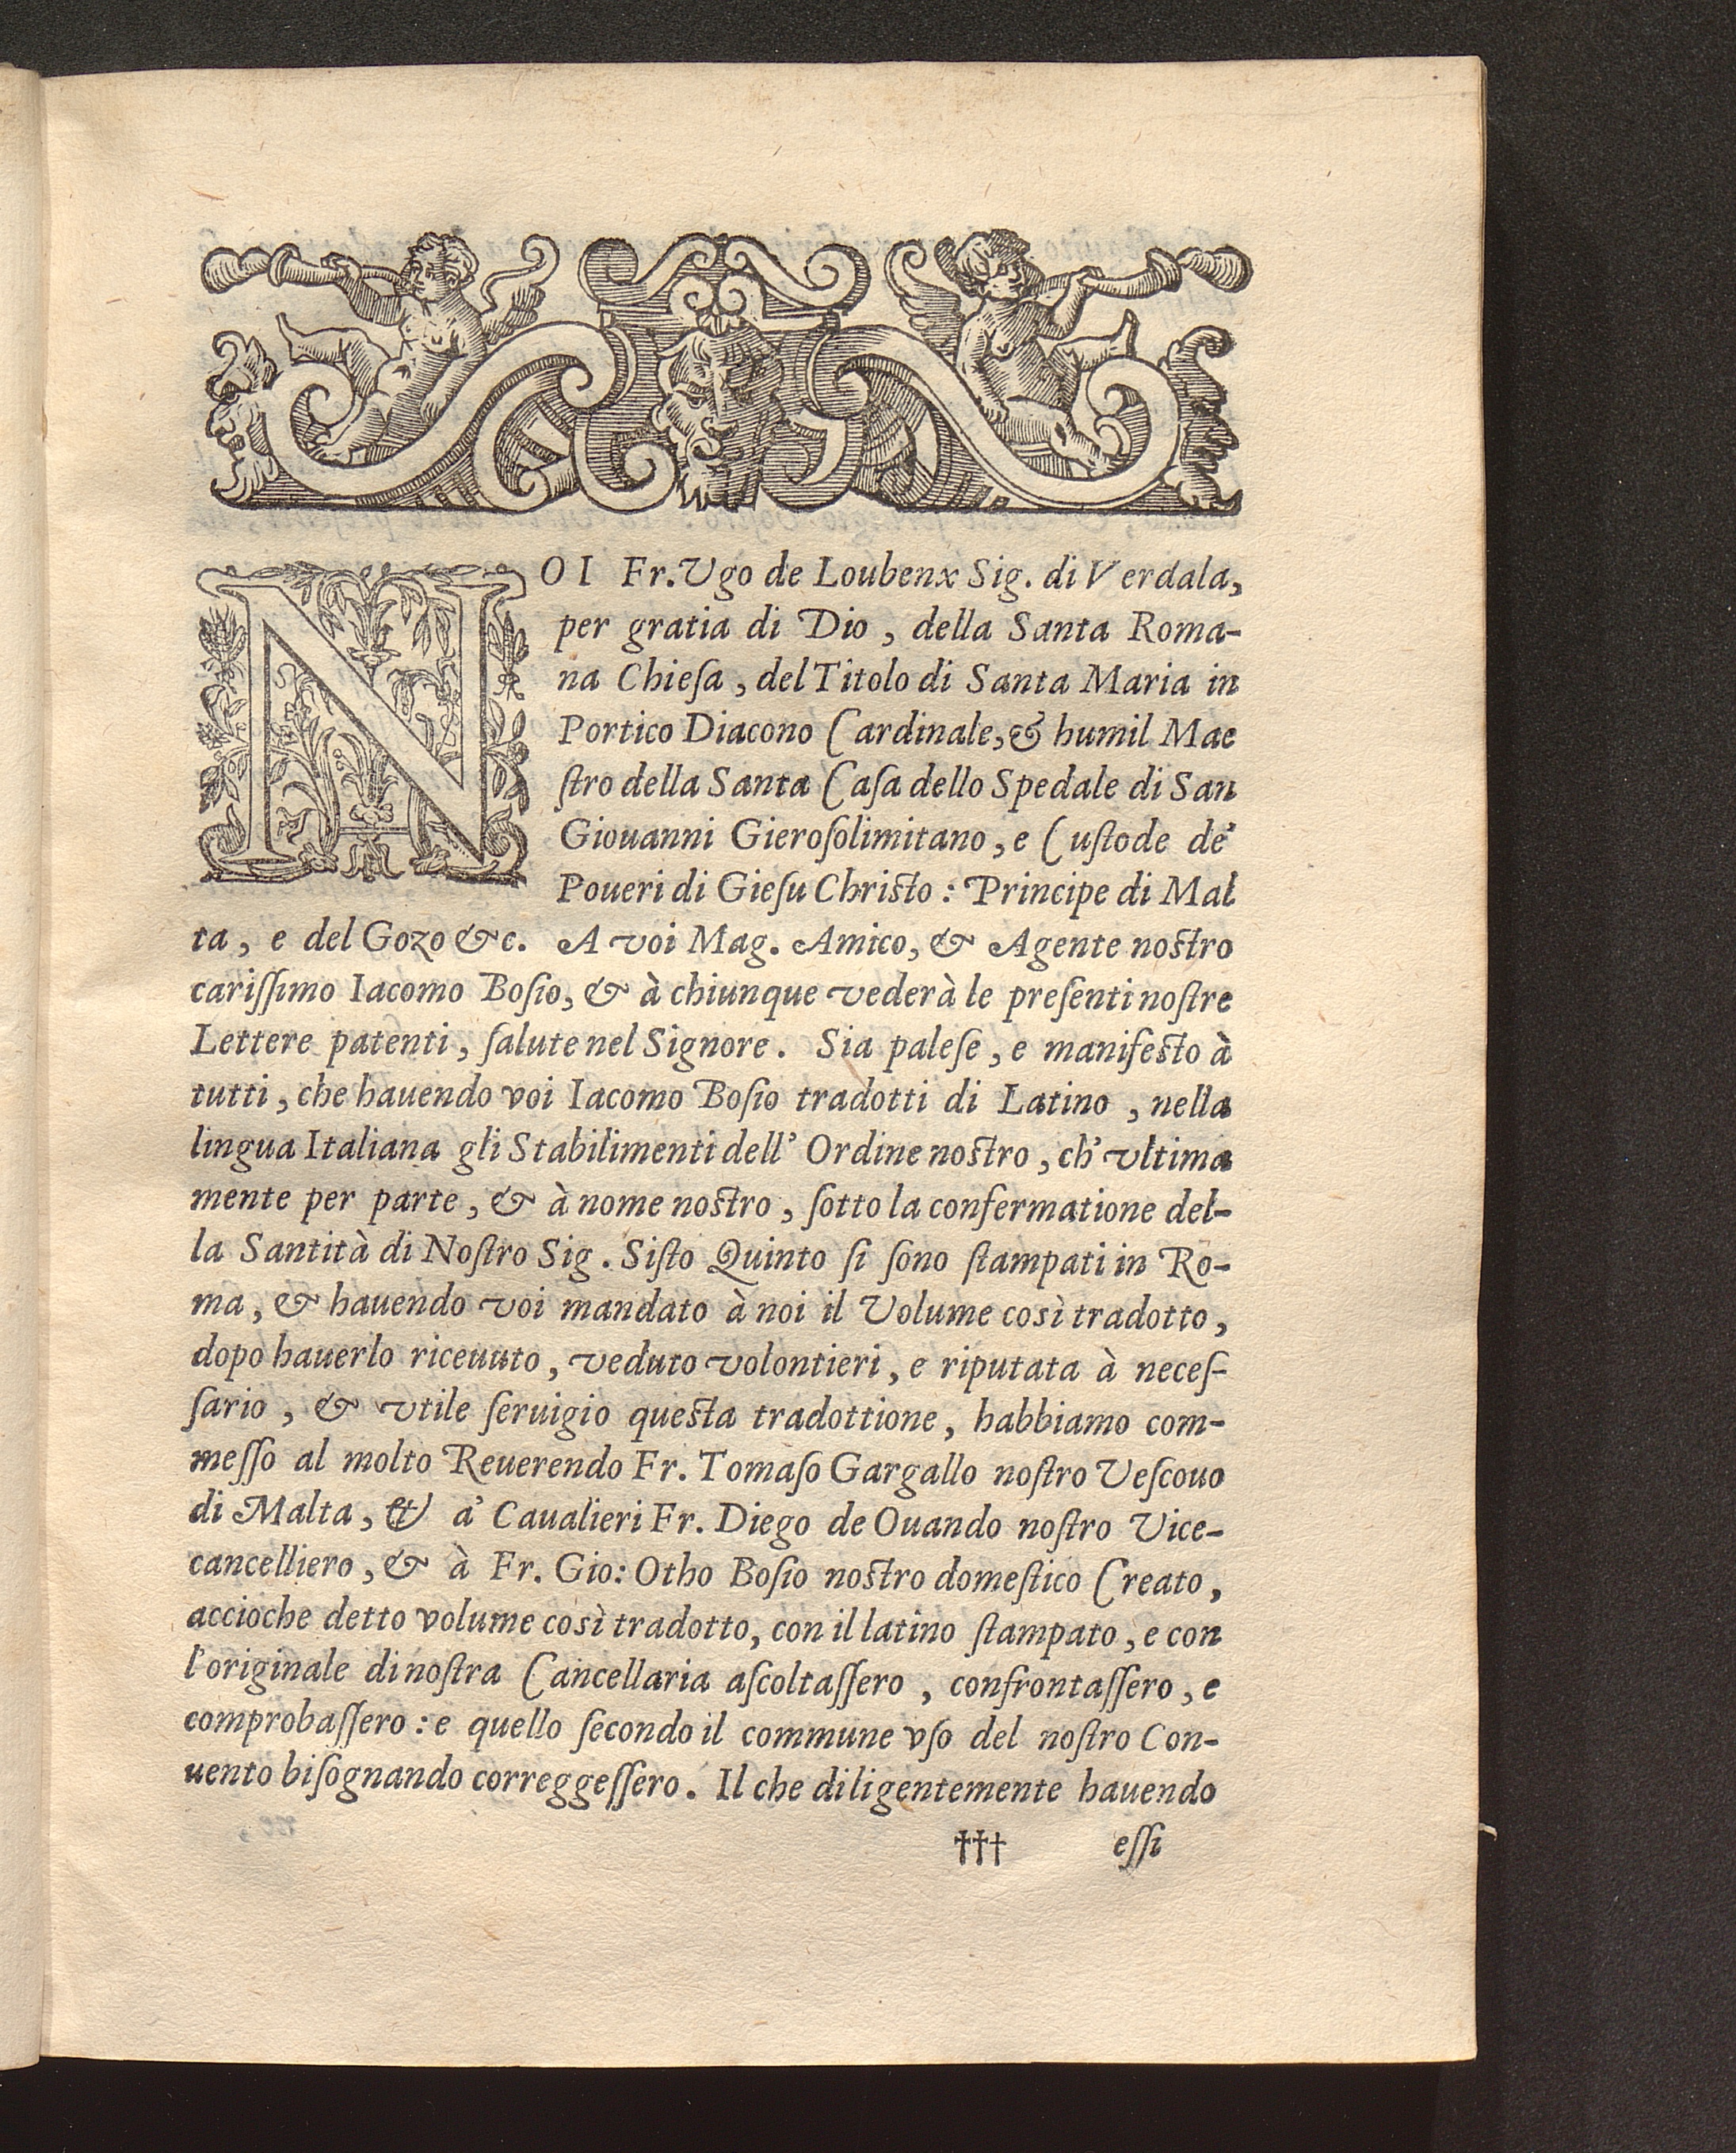 NOI Fr. Ugo de Loubenx Sig. di Verdala,
per gratia di Dio, della Santa Roma-
na Chieſa, del Titolo di Santa Maria in
Portico Diacono Cardinale, & humil Mae
ſtro della Santa Caſa dello Spedale di San
Giouanni Gieroſolimitano, e Cuſtode de'
Poueri di Gieſu Chriſto: Principe di Mal
ta, e del Gozo &c. A voi Mag. Amico, & Agente noſtro
cariſſimo Iacomo Boſio, & à chiunque vederà le preſenti noſtre
Lettere patenti, ſalute nel Signore. Sia paleſe, e manifeſto à
tutti, che hauendo voi Iacomo Boſio tradotti di Latino, nella
lingua Italiana gli Stabilimenti dell' Ordine noſtro, ch' vltima
mente per parte, & à nome noſtro, ſotto la confermatione del-
la Santità di Noſtro Sig. Siſto Quinto ſi ſono ſtampati in Ro-
ma, & hauendo voi mandato à noi il Volume così tradotto,
dopo hauerlo riceuuto, veduto volontieri, e riputata à neceſ-
ſario, & vtile ſeruigio queſta tradottione, habbiamo com-
meſſo al molto Reuerendo Fr. Tomaſo Gargallo noſtro Veſcouo
di Malta, & a' Caualieri Fr. Diego de Ouando noſtro Vice-
cancelliero, & à Fr. Gio: Otho Boſio noſtro domeſtico Creato,
accioche detto volume così tradotto, con il latino ſtampato, e con
l'originale di noſtra Cancellaria aſcoltaſſero, confrontaſſero, e
comprobaſſero: e quello ſecondo il commune vſo del noſtro Con-
uento biſognando correggeſſero. Il che diligentemente hauendo
††† eſſi